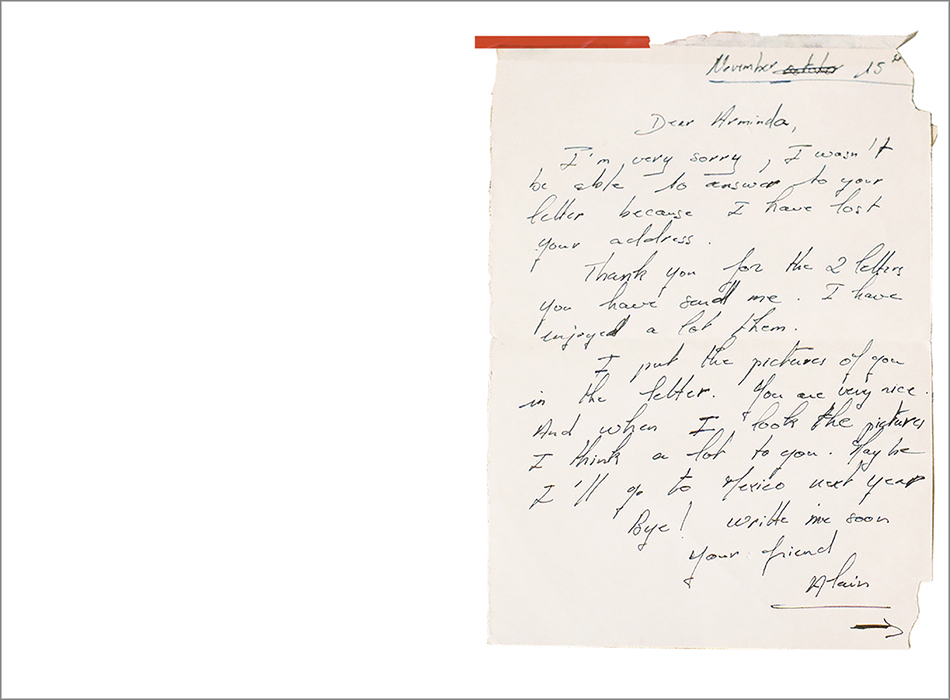 November ~~october~~ 15
Dear Arminda,
I'm very sorry, I wasn't
be able to answer to your
letter because I have lost
your address.
Thank you for the 2 letters
you have send me. I have
enjoyed a lot them.
I put the pictures of you
in the letter. You are very nice.
And when I look the pictures
I think a lot to you. Maybe
I'll go to Mexico next year
Bye! writte me soon
Your friend
Alain